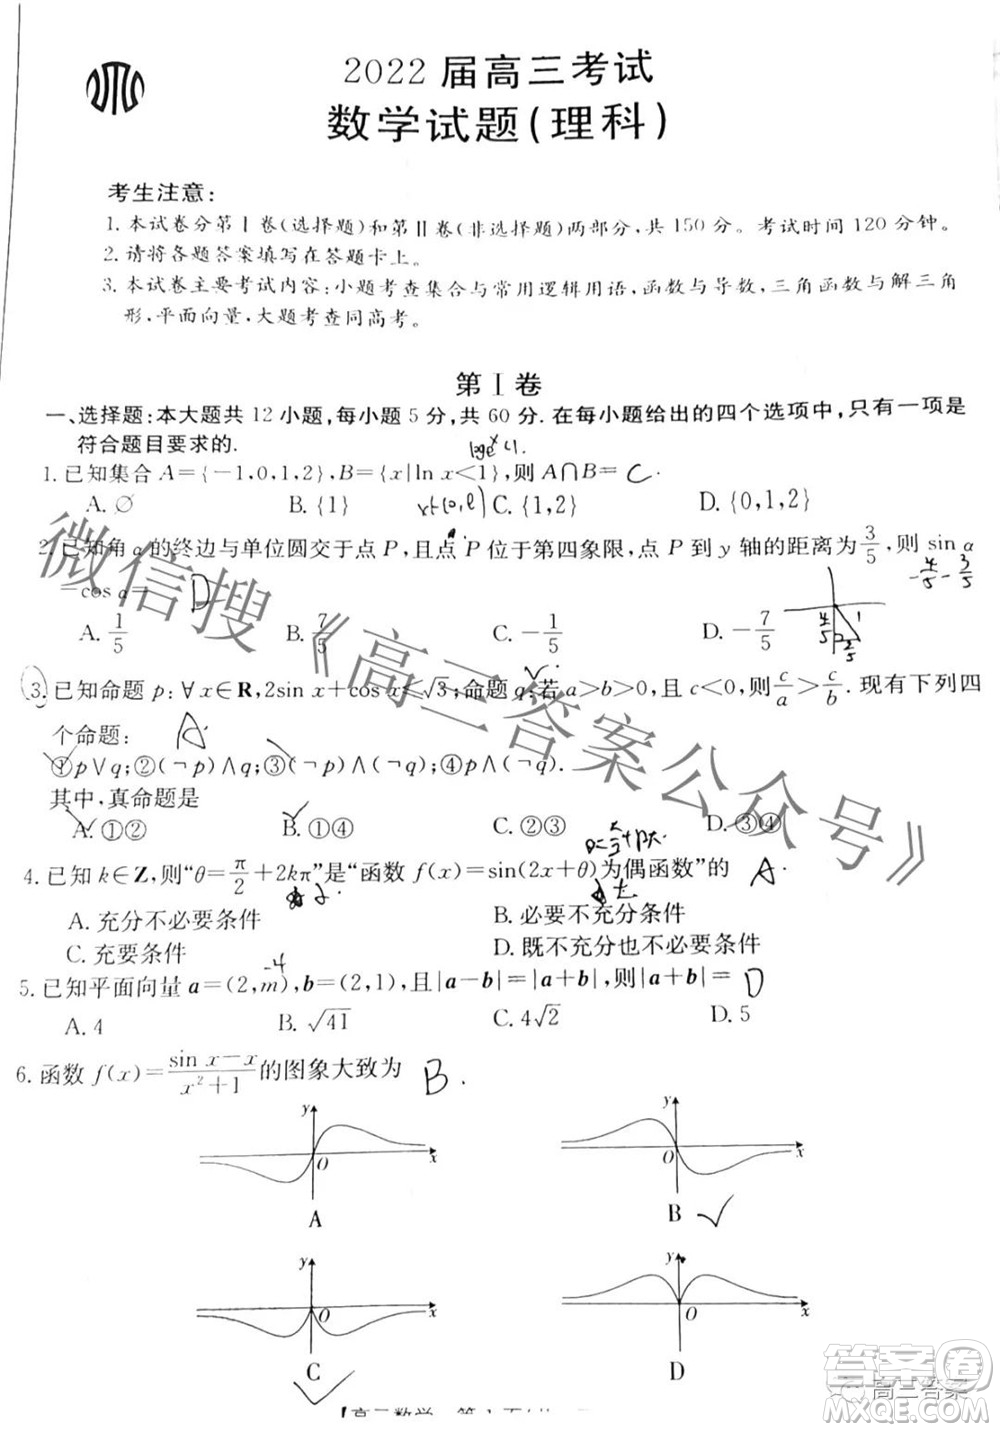 2022届高三考试
数学试题(理科)
考生注意:
1.本试卷分第Ⅰ卷(选择题)和第Ⅱ卷(非选择题)两部分,共150分。考试时间120分钟。
2.请将各题答案填写在答题卡上。
3.本试卷主要考试内容:小题考查集合与常用逻辑用语,函数与导数,三角函数与解三角
形,平面向量,大题考查同高考。
第Ⅰ卷
一、选择题:本大题共12小题,每小题5分,共60分.在每小题给出的四个选项中,只有一项是
符合题目要求的.
1.已知集合A={-1,0,1,2},B={x|ln x<1},则A∩B= C.
A.∅ B.{1} C.{1,2} D.{0,1,2}
2.已知角α的终边与单位圆交于点P,且点P位于第四象限,点P到y轴的距离为3/5,则sin α
-cos α= D
-4/5 - 3/5
A.1/5 B.7/5 C.-1/5 D.-7/5
3.已知命题p:∀x∈R,2sin x+cos x≤√3;命题q:若a>b>0,且c<0,则c/a>c/b.现有下列四
个命题: A.
①p∨q;②(¬p)∧q;③(¬p)∧(¬q);④p∧(¬q).
其中,真命题是
A.①② B.①④ C.②③ D.③④
4.已知k∈Z,则“θ=π/2+2kπ”是“函数f(x)=sin(2x+θ)为偶函数”的 A.
A.充分不必要条件 B.必要不充分条件
C.充要条件 D.既不充分也不必要条件
-4
5.已知平面向量a=(2,m),b=(2,1),且|a-b|=|a+b|,则|a+b|= D
A.4 B.√41 C.4√2 D.5
6.函数f(x)=(sin x-x)/(x²+1)的图象大致为 B.
y O x
A
y O x
B
y O x
C
y O x
D
微信搜《高三答案公众号》
答案卷
高三答案